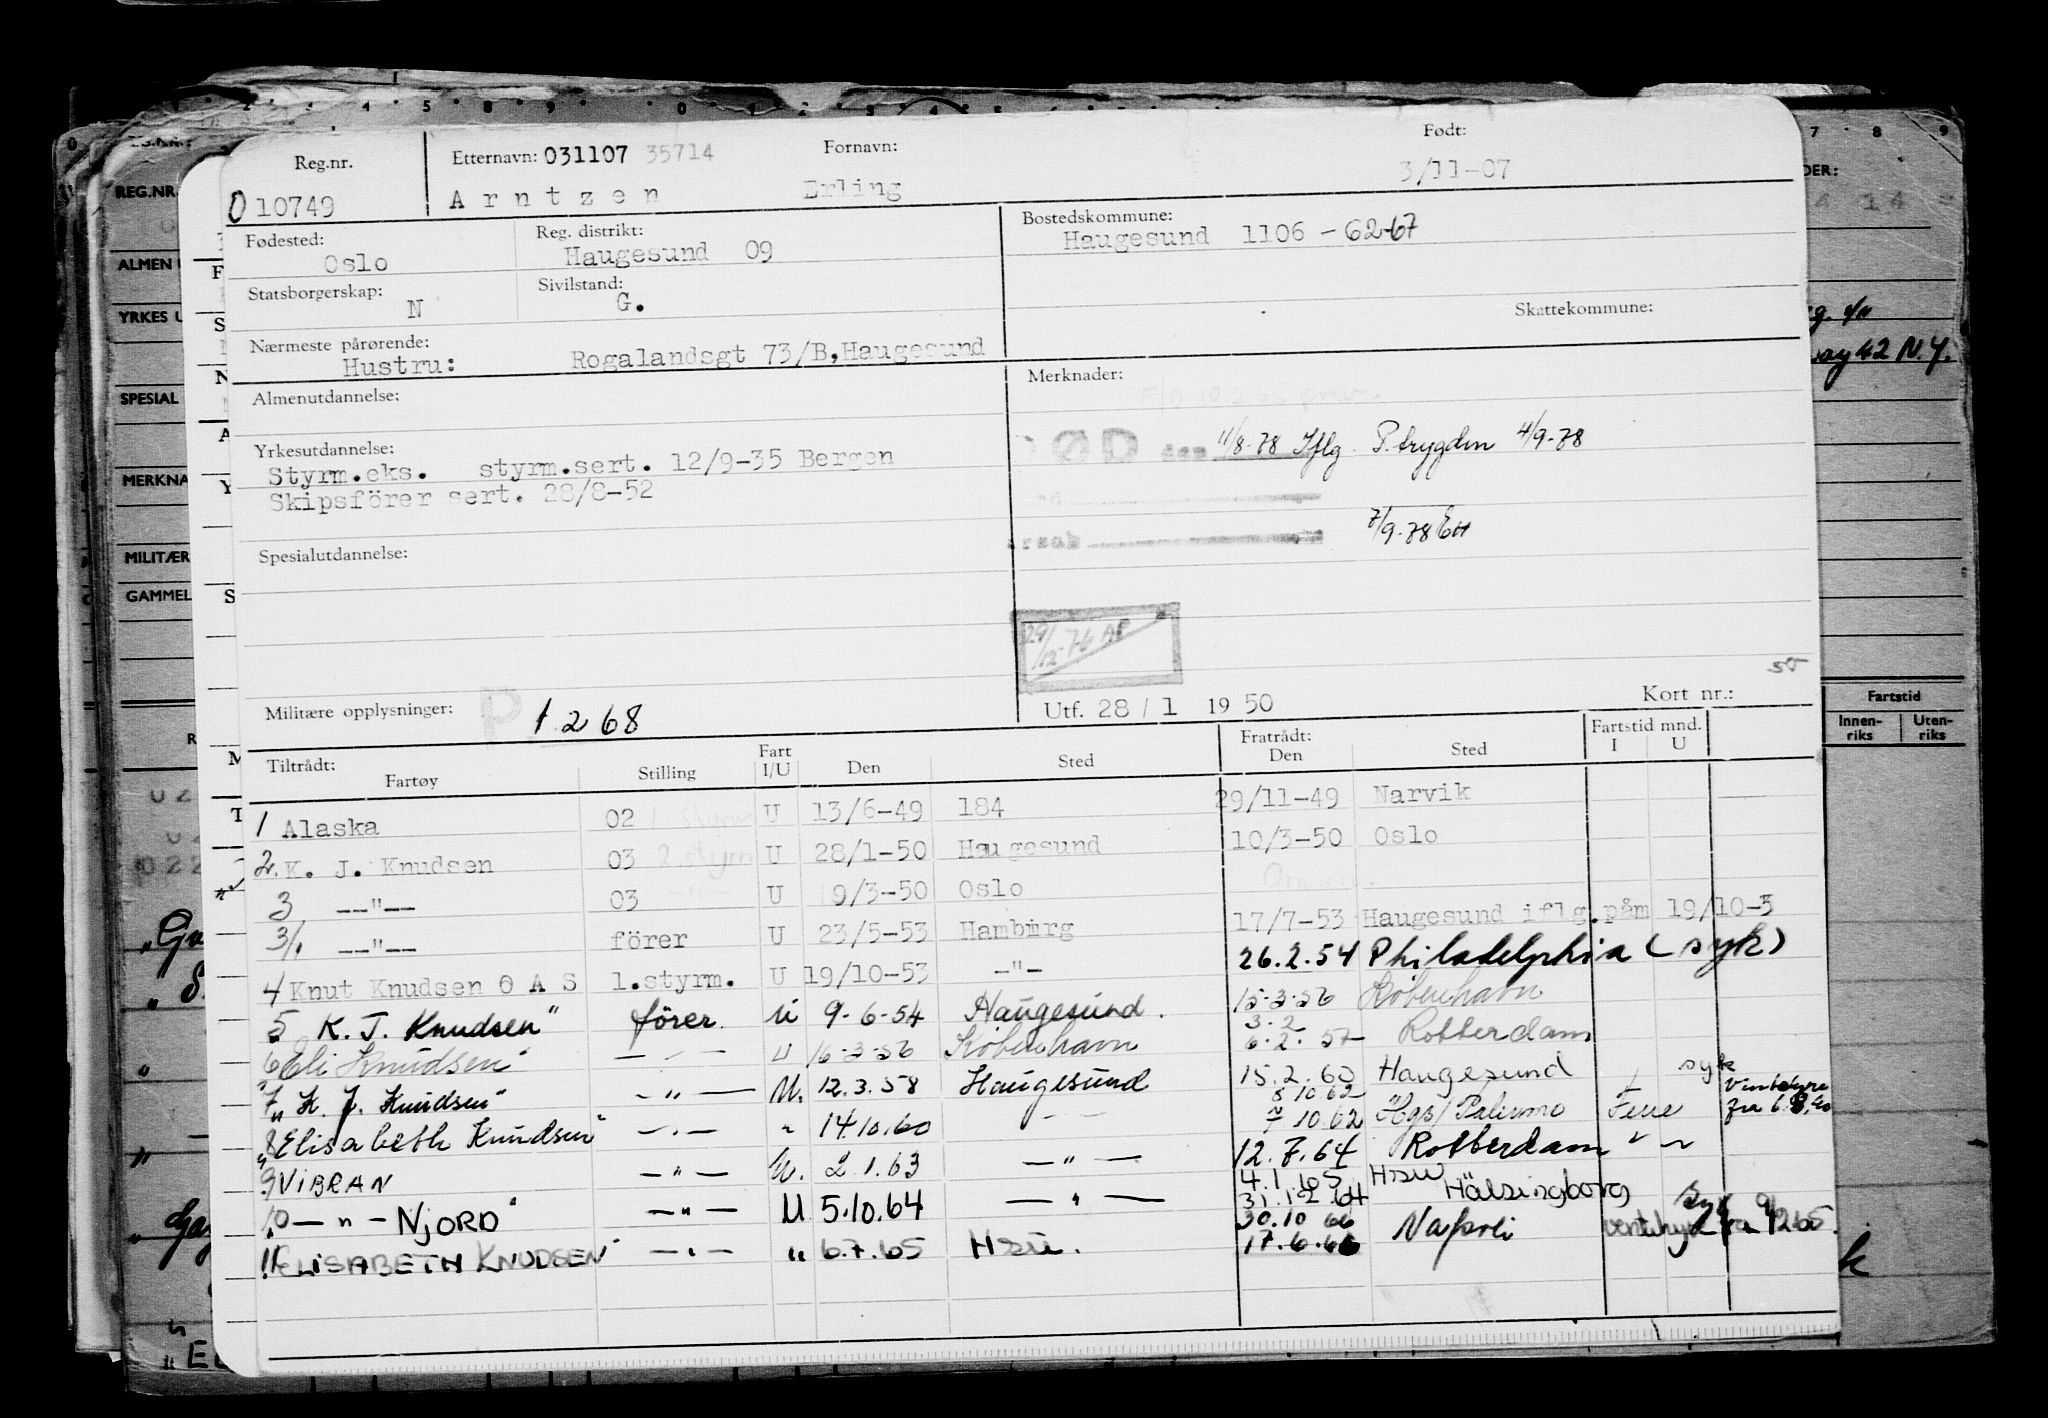 Reg.nr. Etternavn: 031107 35714 Fornavn: Født:
010749 Arntzen Erling 3/11-07
Fødested: Reg. distrikt: Bostedskommune:
Oslo Haugesund 09 Haugesund 1106 - 62-67
Statsborgerskap: Sivilstand:
N G. Skattekommune:
Nærmeste pårørende:
Hustru: Rogalandsgt 73/B, Haugesund
Almenutdannelse: Merknader:
Yrkesutdannelse: ØD den 11/8-78 Iflg. P.trygden 4/9-78
Styrm.eks. styrm.sert. 12/9-35 Bergen
Skipsförer sert. 28/8-52
7/9-78
Spesialutdannelse:
29/12-76
Militære opplysninger: P 1.2 68 Utf. 28 / 1 19 50 Kort nr.:
Tiltrådt: Fart Fratrådt: Fartstid mnd.
Fartøy Stilling I/U Den Sted Den Sted I U
1 Alaska 02 1. styrm U 13/6-49 184 29/11-49 Narvik
2. K. J. Knudsen 03 2 styrm U 28/1-50 Haugesund 10/3-50 Oslo
3 --"-- 03 U 9/3-50 Oslo
3/1 --"-- förer U 23/5-53 Hamburg 17/7-53 Haugesund iflg.påm 19/10-5
4 Knut Knudsen O A S 1.styrm. U 19/10-53 -"- 26.2.54 Philadelphia (syk)
5 K. J. Knudsen" förer. U 9-6-54 Haugesund. 15-3-56 København
6 Eli Knudsen" - " - U 16-3-56 København 3-2 6-2-57 Rotterdam
7 „K. J. Knudsen" - " - U. 12.3.58 Haugesund 15.2.60 Haugesund syk
8 „Elisabeth Knudsen" - " - " 14.10.60 - - 8 10 62 7 10.62 Hgs/Palermo Ferie fra 6.8.60
9 VIBRAN - " - U. 2.1.63 - " - 12.7.64 Rotterdam " "
10 - " - NJORD" - " - U 5.10.64 - " - 4.1.65 31.12.64 Hsu Hälsingborg
11 ELISABETH KNUDSEN" - " - " 6.7.65 Hsu. 30.10 66 17.6.66 Napoli
REG.NR.
ALMEN U
YRKES U
SPESIAL
MERKNA
MILITÆR
GAMMEL
DER:
42 N.Y.
Fartstid
Innen-riks Uten-riks